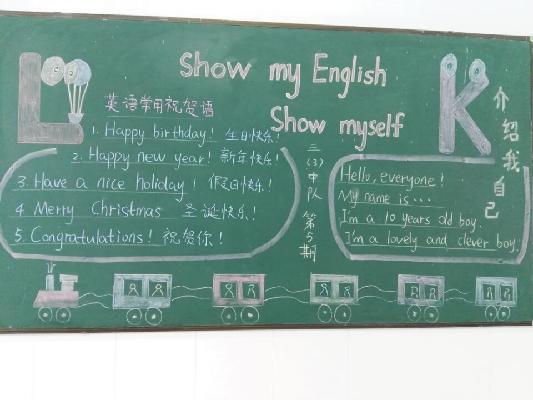 L
K
Show my English
Show myself
英语常用祝贺语
1. Happy birthday! 生日快乐!
2. Happy new year! 新年快乐!
3. Have a nice holiday! 假日快乐!
4 Merry Christmas 圣诞快乐!
5. Congratulations! 祝贺你!
三(3)中队 第5期
介绍我自己
Hello, everyone!
My name is...
I'm a 10 years old boy.
I'm a lovely and clever boy.